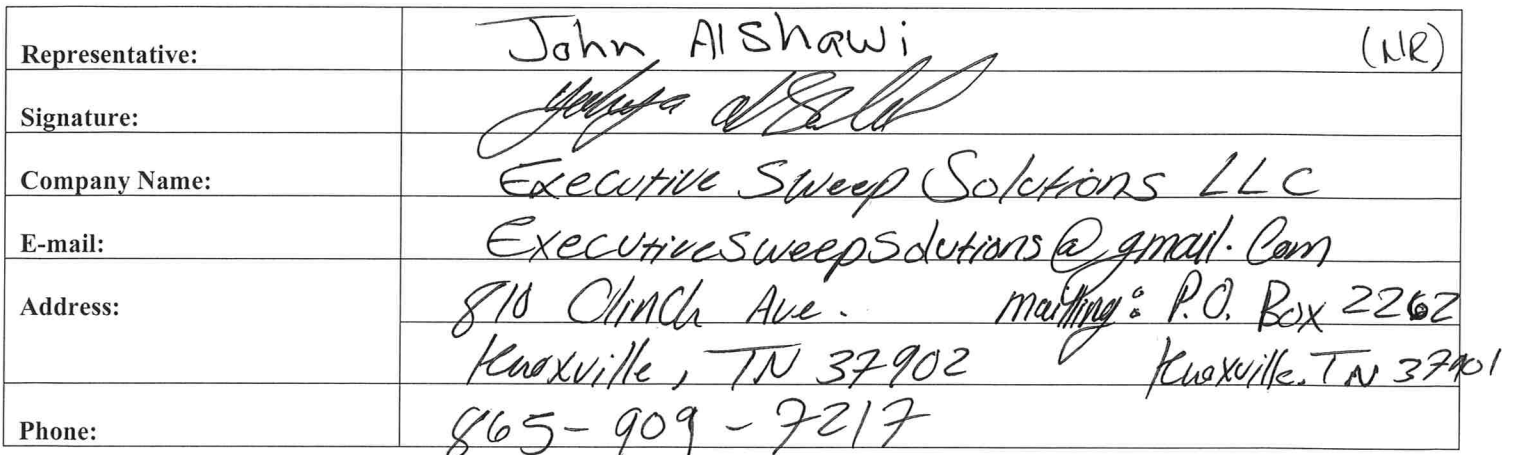 Representative: John AlShawi (NR)
Signature:
Company Name: Executive Sweep Solutions LLC
E-mail: ExecutiveSweepSolutions@gmail.Com
Address: 810 Clinch Ave. mailing: P.O. Box 2262
Knoxville, TN 37902 Knoxville, TN 37901
Phone: 865-909-7217